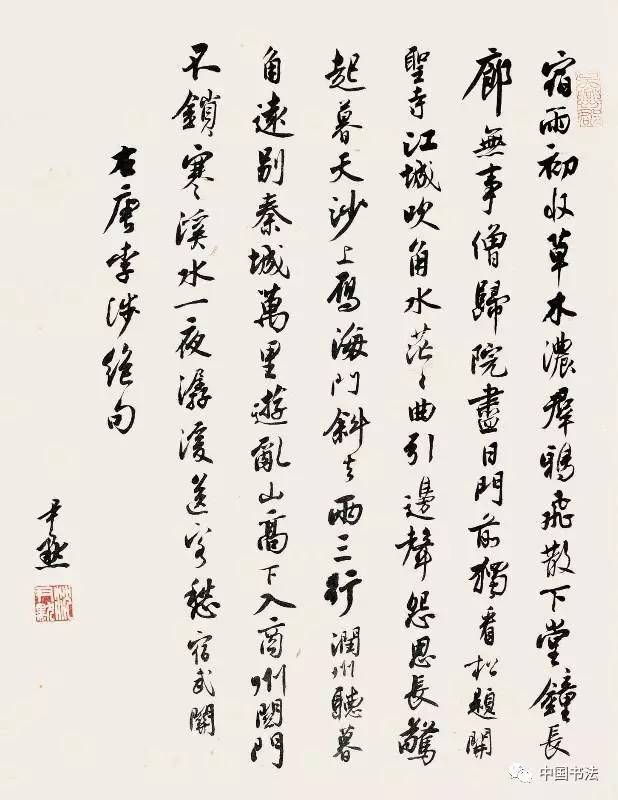 宿雨初收草木濃群鴉飛散下堂鐘長
廊無事僧歸院盡日門前獨看松題開
聖寺江城吹角水茫〻曲引邊聲怨思長驚
起暮天沙上雁海門斜去兩三行潤州聽暮
角遠別秦城萬里遊亂山高下入商州關門
不鎖寒溪水一夜潺湲送客愁宿武關
右唐李涉絕句
尹默
中国书法